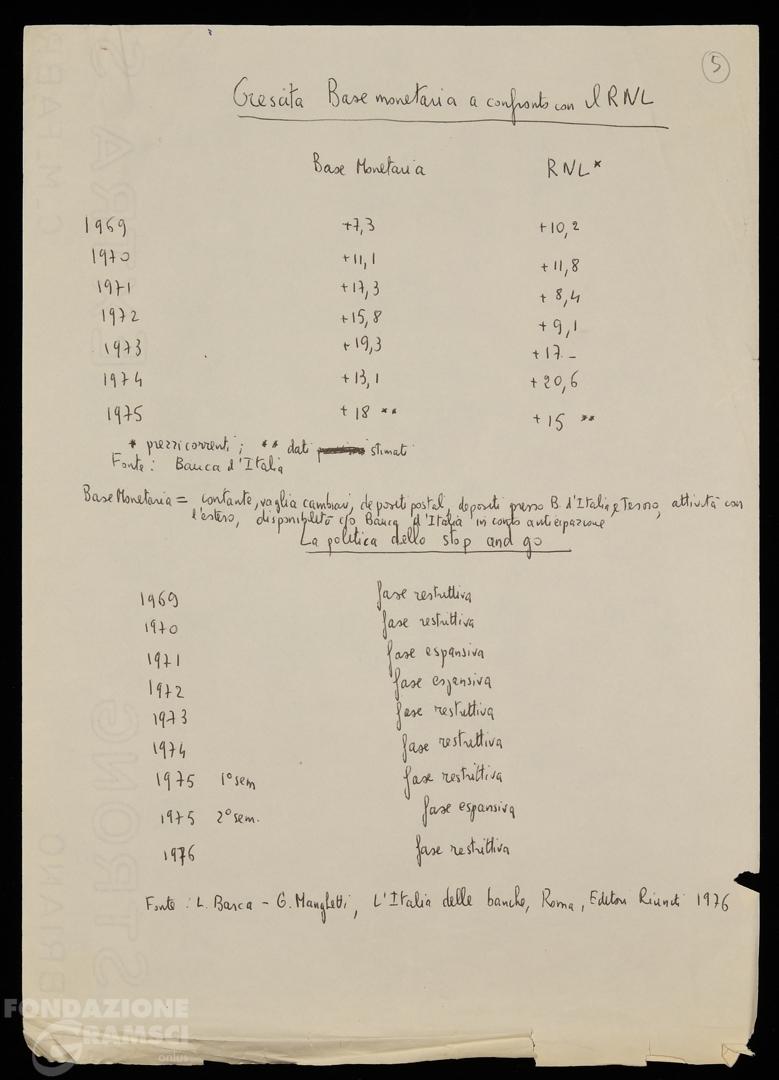 5
Crescita Base monetaria a confronto con il RNL
Base Monetaria RNL*
1969 +7,3 +10,2
1970 +11,1 +11,8
1971 +17,3 +8,4
1972 +15,8 +9,1
1973 +19,3 +17 –
1974 +13,1 +20,6
1975 +18 ** +15 **
* prezzi correnti; ** dati stimati
Fonte: Banca d'Italia
Base Monetaria = contante, vaglia cambiari, depositi postali, depositi presso B. d'Italia e Tesoro, attività con
l'estero, disponibilità c/o Banca d'Italia in conto anticipazione
La politica dello stop and go
1969 fase restrittiva
1970 fase restrittiva
1971 fase espansiva
1972 fase espansiva
1973 fase restrittiva
1974 fase restrittiva
1975 1° sem fase restrittiva
1975 2° sem. fase espansiva
1976 fase restrittiva
Fonte: L. Barca - G. Manghetti, L'Italia delle banche, Roma, Editori Riuniti 1976
C. M. FABR
BRIANO
STRONG
FONDAZIONE
GRAMSCI
onlus